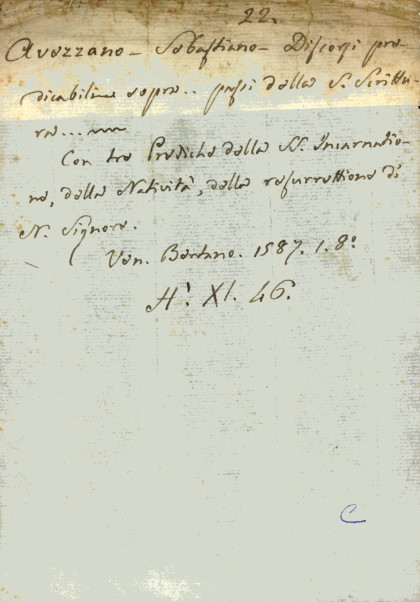 22.
Avezzano - Sebastiano - Discorsi pre=
dicabili sopra .. passi della S. Scrittu-
ra ...
Con tre Prediche della SS. Incarnatio-
ne, della Natività, della resurrettione di
N. Signore.
Ven. Bertano. 1587. 1. 8º
A. XI. 46.
C